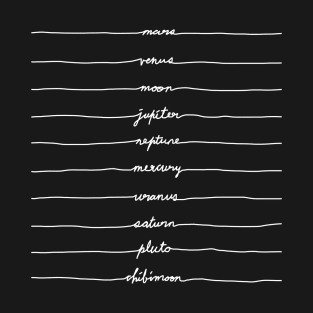 mars
venus
moon
jupiter
neptune
mercury
uranus
saturn
pluto
chibimoon